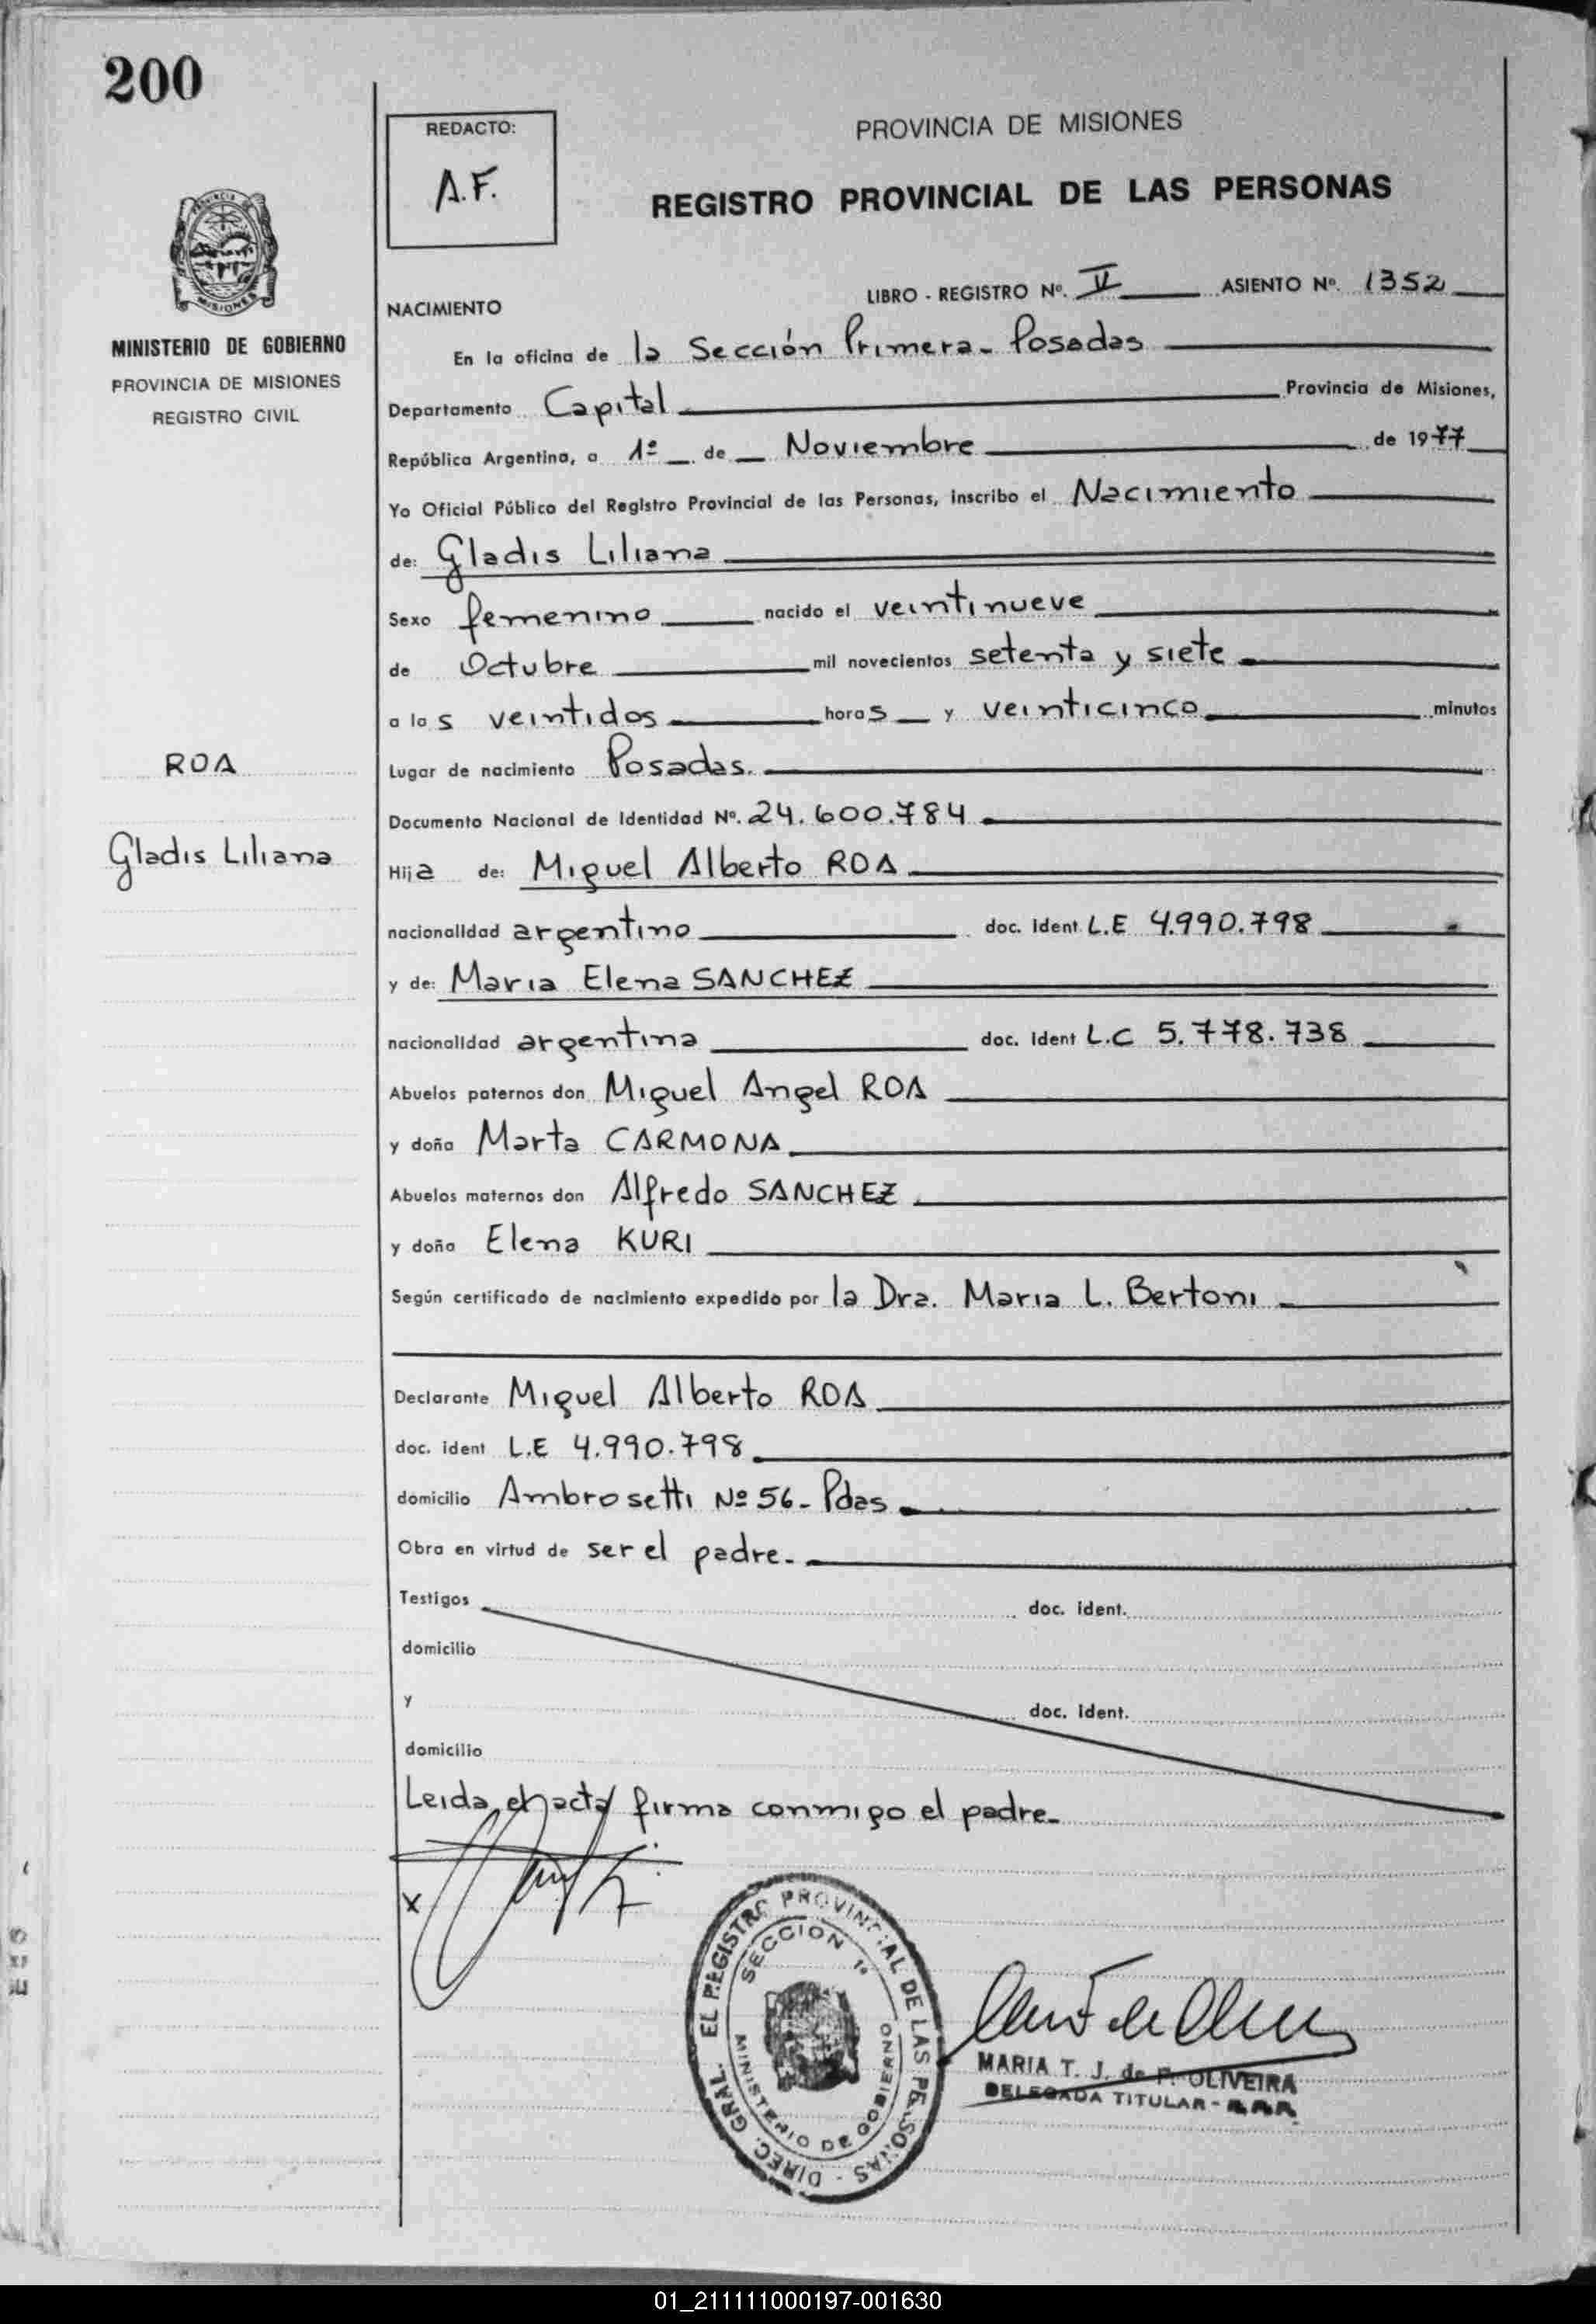 200
REDACTO:
A.F.
PROVINCIA DE MISIONES
REGISTRO PROVINCIAL DE LAS PERSONAS
MINISTERIO DE GOBIERNO
PROVINCIA DE MISIONES
REGISTRO CIVIL
NACIMIENTO
LIBRO - REGISTRO Nº. V ASIENTO Nº. 1352
En la oficina de la Sección Primera - Posadas
Departamento Capital Provincia de Misiones,
República Argentina, a 1º de Noviembre de 1977
Yo Oficial Público del Registro Provincial de las Personas, inscribo el Nacimiento
de: Gladis Liliana
Sexo femenino nacido el veintinueve
de Octubre mil novecientos setenta y siete
a las veintidos horas y veinticinco minutos
ROA
Lugar de nacimiento Posadas.
Documento Nacional de Identidad Nº. 24.600.784
Gladis Liliana
Hija de: Miguel Alberto ROA
nacionalidad argentino doc. Ident L.E 4.990.798
y de: Maria Elena SANCHEZ
nacionalidad argentina doc. Ident L.C 5.778.738
Abuelos paternos don Miguel Angel ROA
y doña Marta CARMONA
Abuelos maternos don Alfredo SANCHEZ
y doña Elena KURI
Según certificado de nacimiento expedido por la Dra. Maria L. Bertoni
Declarante Miguel Alberto ROA
doc. ident L.E 4.990.798
domicilio Ambrosetti Nº 56 - Pdas
Obra en virtud de ser el padre.
Testigos doc. ident.
domicilio
y doc. ident.
domicilio
Leida el acta firma conmigo el padre.
x
DIREC. GRAL. EL REGISTRO PROVINCIAL DE LAS PERSONAS
SECCION 1º
MINISTERIO DE GOBIERNO
MARIA T. J. de F. OLIVEIRA
DELEGADA TITULAR -
01_211111000197-001630